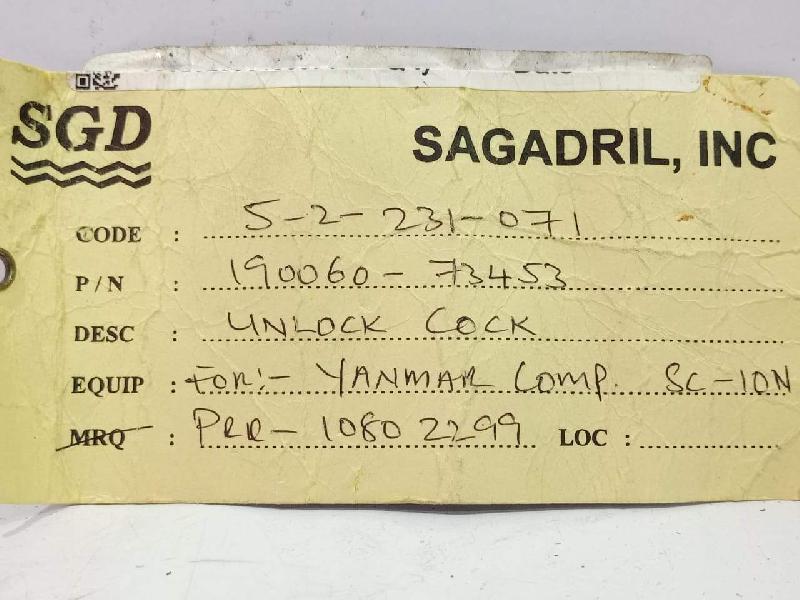 SGD
SAGADRIL, INC
CODE : 5-2-231-071
P/N : 190060-73453
DESC : UNLOCK COCK
EQUIP : FOR:- YANMAR COMP. SC-10N
MRQ : PRR-1080 2299 LOC :